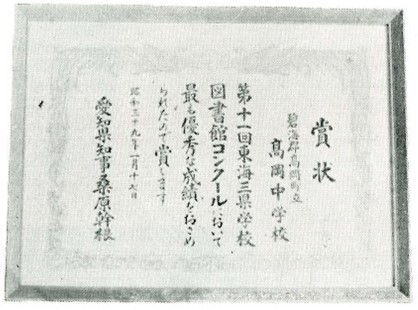 賞状
碧海郡高岡町立
高岡中学校
第十一回東海三県学校
図書館コンクールにおいて
最も優秀な成績をおさめ
られたので賞します
昭和三十九年一月十七日
愛知県知事桑原幹根